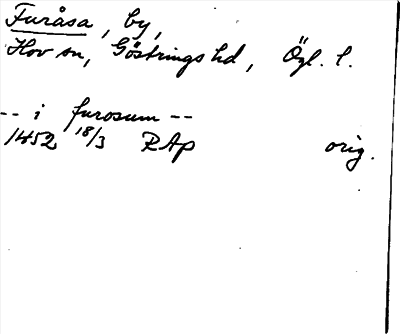 Furåsa, by,
Hov sn, Göstrings hd, Ögl. l.
-- i furosum --
1452 18/3 RAp orig.